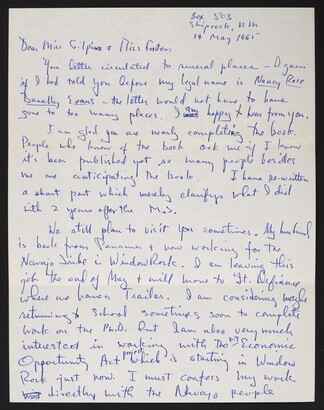 Box 503
Shiprock, N.M.
14 May 1965
Dear Miss Gilpin & Miss Forster,
Your letter circulated to several places – I guess
if I had told you before my legal name is Nancy Rose
Donelly Evans – the letter would not have to have
gone to too many places. I am happy to hear from you.
I am glad you are nearly completing the book.
People who know of the book ask me if I know
it's been published yet so many people besides
me are anticipating the book. I have re-written
a short part which merely clarifys what I did
with 2 years after the M.S.
We still plan to visit you sometimes. My husband
is back from Panama & now working for the
Navajo Tribe in Window Rock. I am leaving this
job the end of May & will move to Ft. Defiance
where we have a Trailer. I am considering maybe
returning to School sometimes soon to complete
work on the Ph.D. but I am also very much
interested in working with the Economic
Opportunity Act which is starting in Window
Rock just now. I must confess my work
directly with the Navajo people